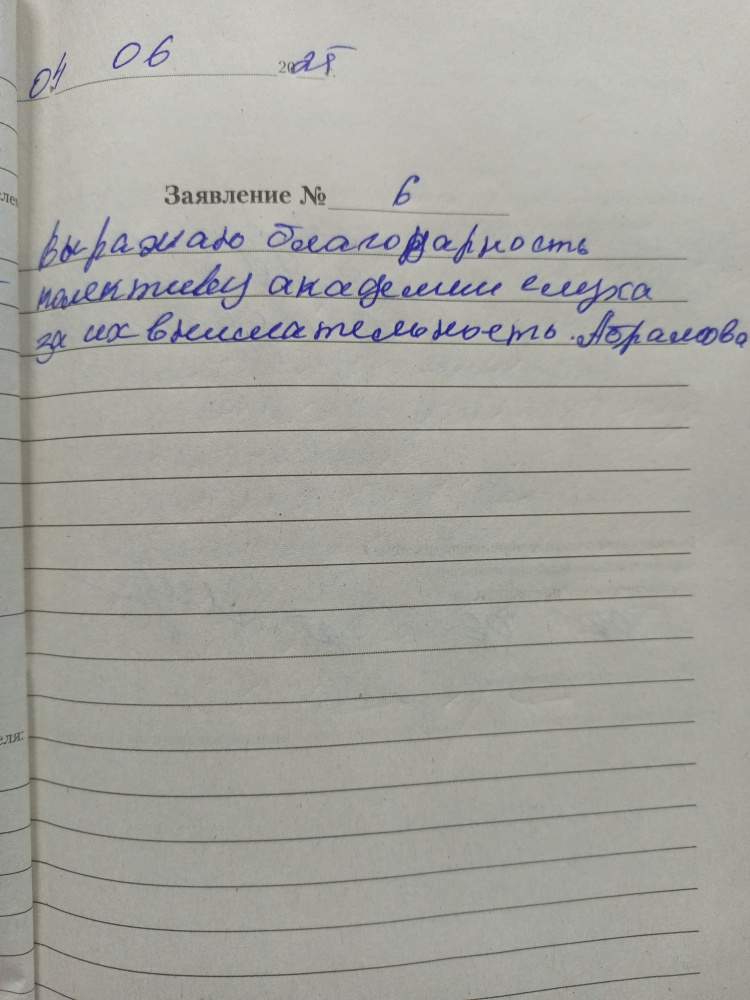 04 06 2025 г.
Заявление № 6
выражаю благодарность
колективу академии слуха
за их внимательность. Абрамова
еля: